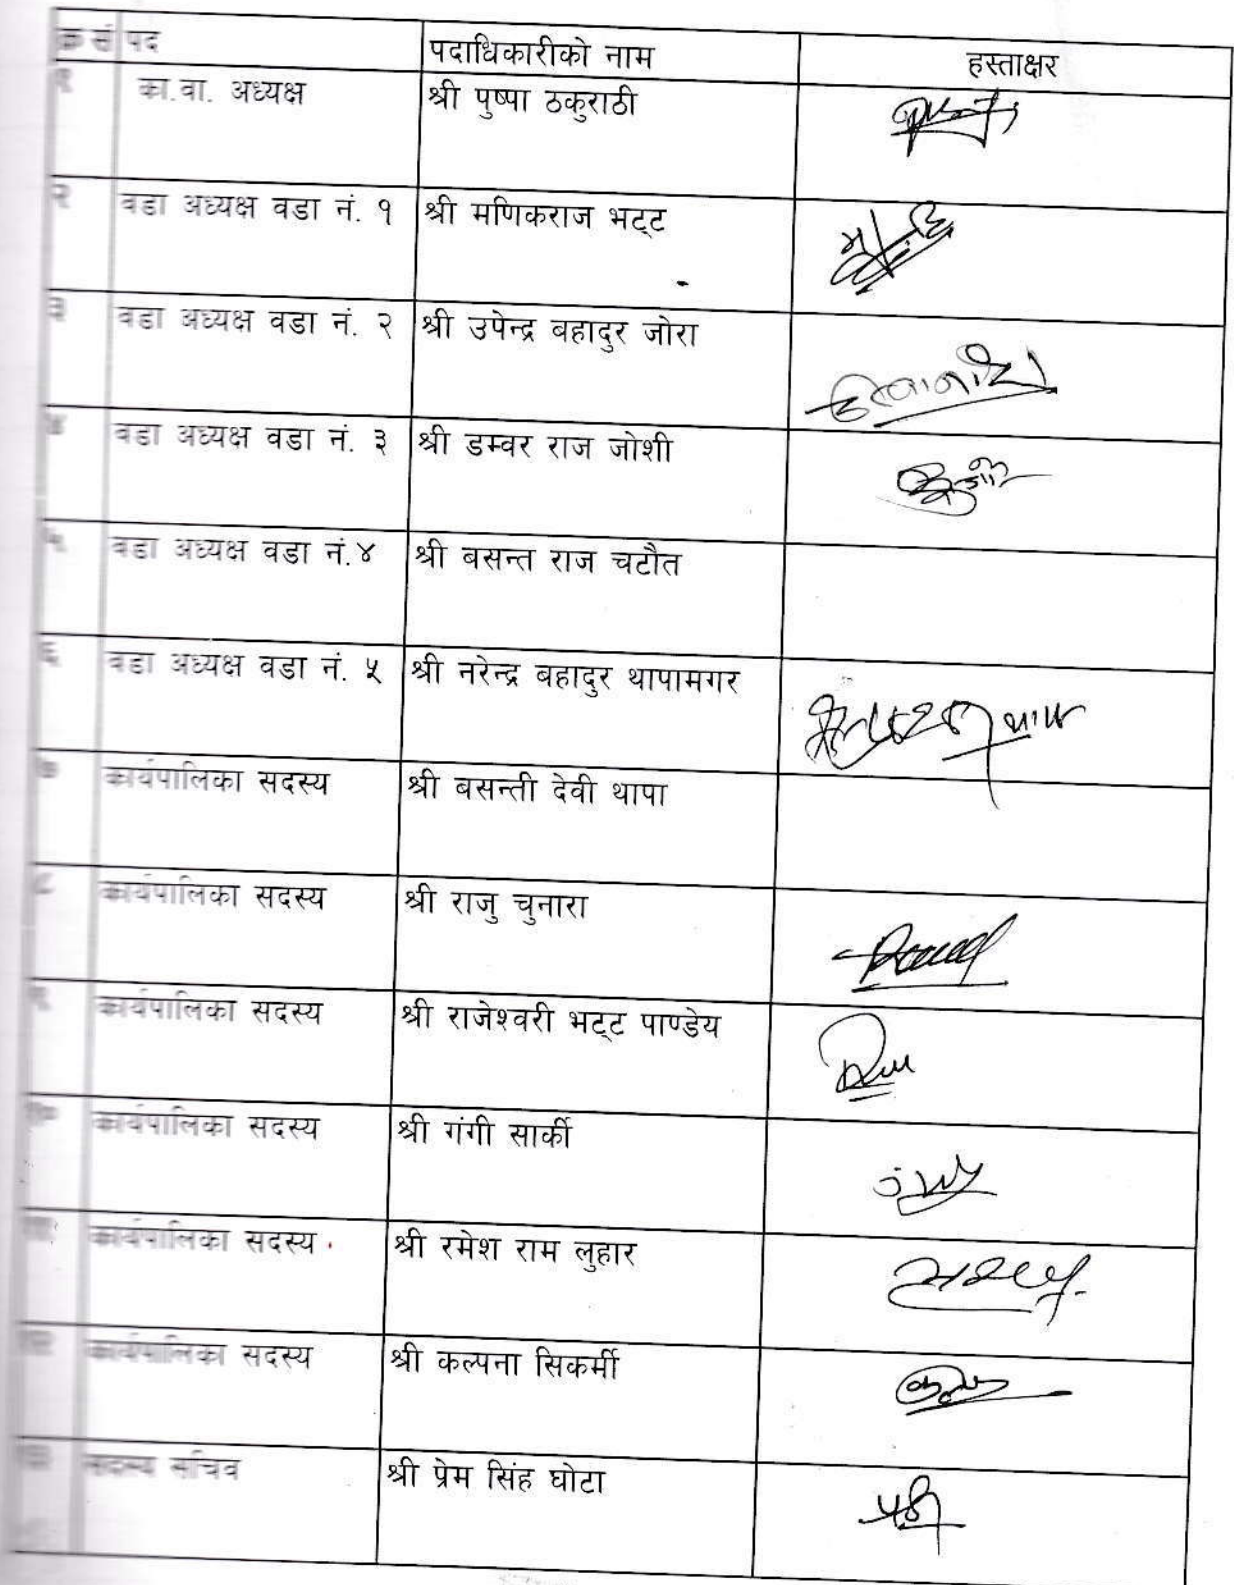 क्र सं पद पदाधिकारीको नाम हस्ताक्षर
१ का.वा. अध्यक्ष श्री पुष्पा ठकुराठी
२ वडा अध्यक्ष वडा नं. १ श्री मणिकराज भट्ट
३ वडा अध्यक्ष वडा नं. २ श्री उपेन्द्र बहादुर जोरा
४ वडा अध्यक्ष वडा नं. ३ श्री डम्वर राज जोशी
५ वडा अध्यक्ष वडा नं.४ श्री बसन्त राज चटौत
६ वडा अध्यक्ष वडा नं. ५ श्री नरेन्द्र बहादुर थापामगर
७ कार्यपालिका सदस्य श्री बसन्ती देवी थापा
८ कार्यपालिका सदस्य श्री राजु चुनारा
९ कार्यपालिका सदस्य श्री राजेश्वरी भट्ट पाण्डेय
१० कार्यपालिका सदस्य श्री गंगी सार्की
११ कार्यपालिका सदस्य श्री रमेश राम लुहार
१२ कार्यपालिका सदस्य श्री कल्पना सिकर्मी
१३ सदस्य सचिव श्री प्रेम सिंह घोटा